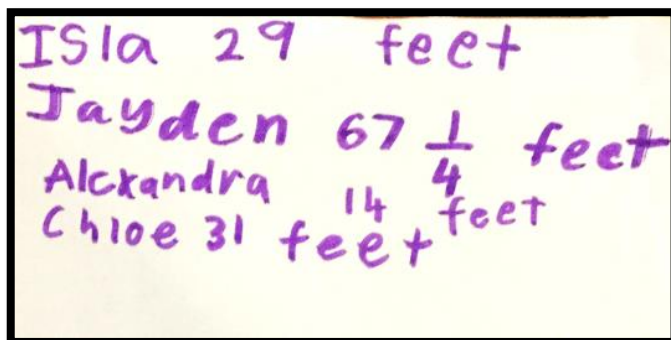 Isla 29 feet
Jayden 67 1/4 feet
Alexandra 14 feet
Chloe 31 feet